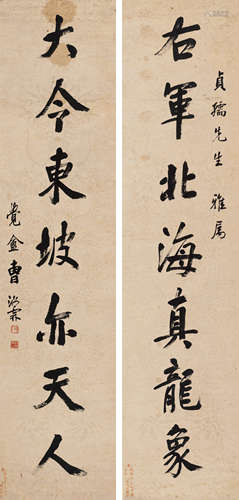 貞孺先生雅屬
右軍北海真龍象
大令東坡亦天人
覺盦曹鴻霖